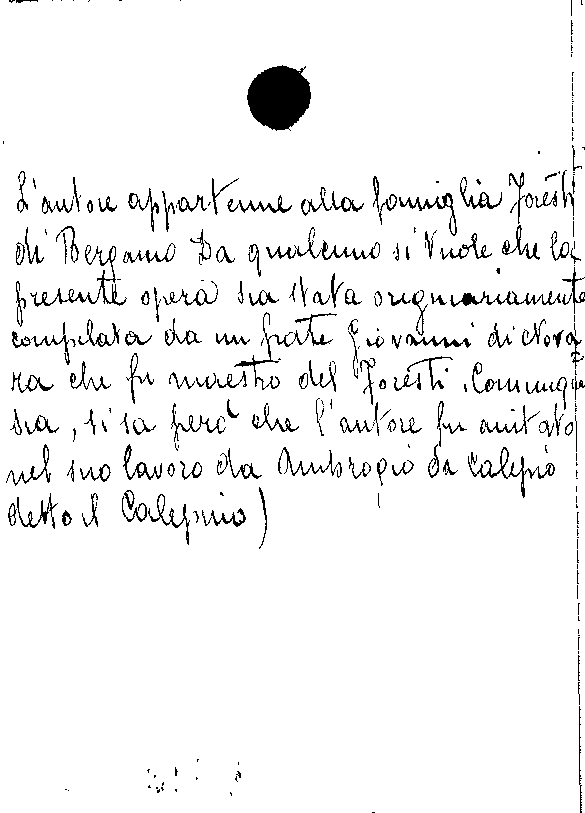 L'autore appartenne alla famiglia Foresti
di Bergamo Da qualcuno si vuole che la
presente opera sia stata originariamente
compilata da un frate Giovanni di Nova
ra che fu maestro del Foresti. Comunque
sia, si sa però che l'autore fu aiutato
nel suo lavoro da Ambrogio da Calepio
detto il Calepino)